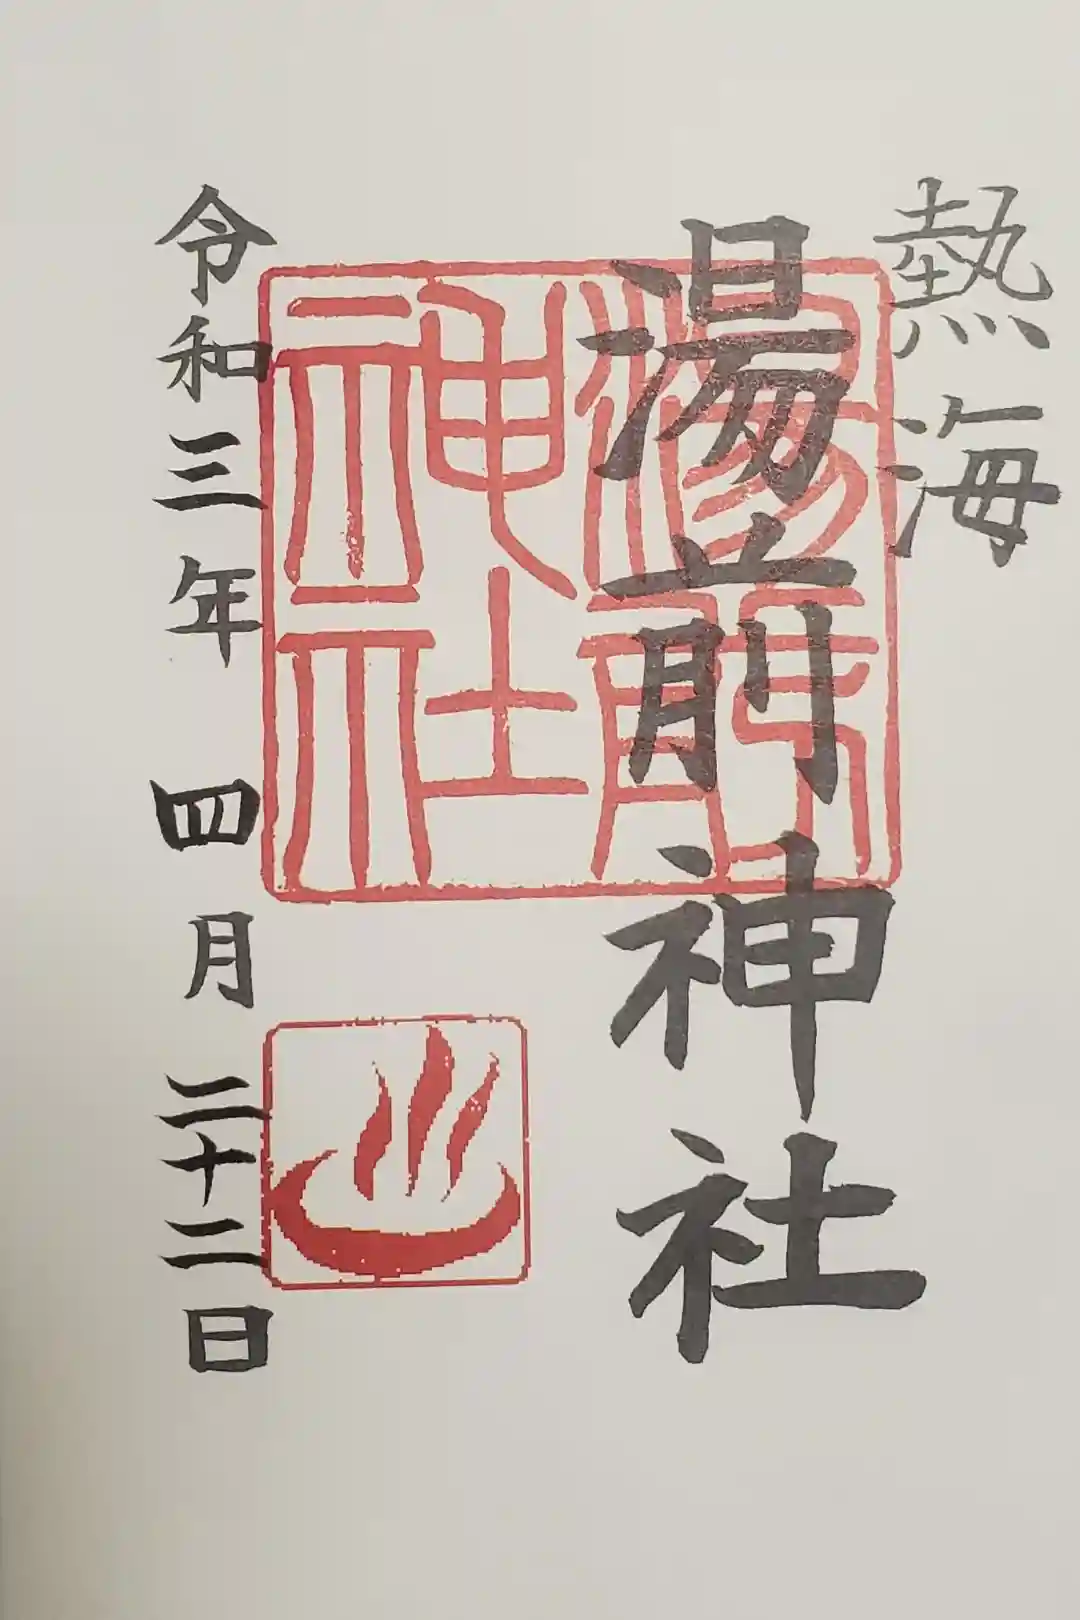 熱海
湯前神社
湯前神社
令和三年 四月 二十二日